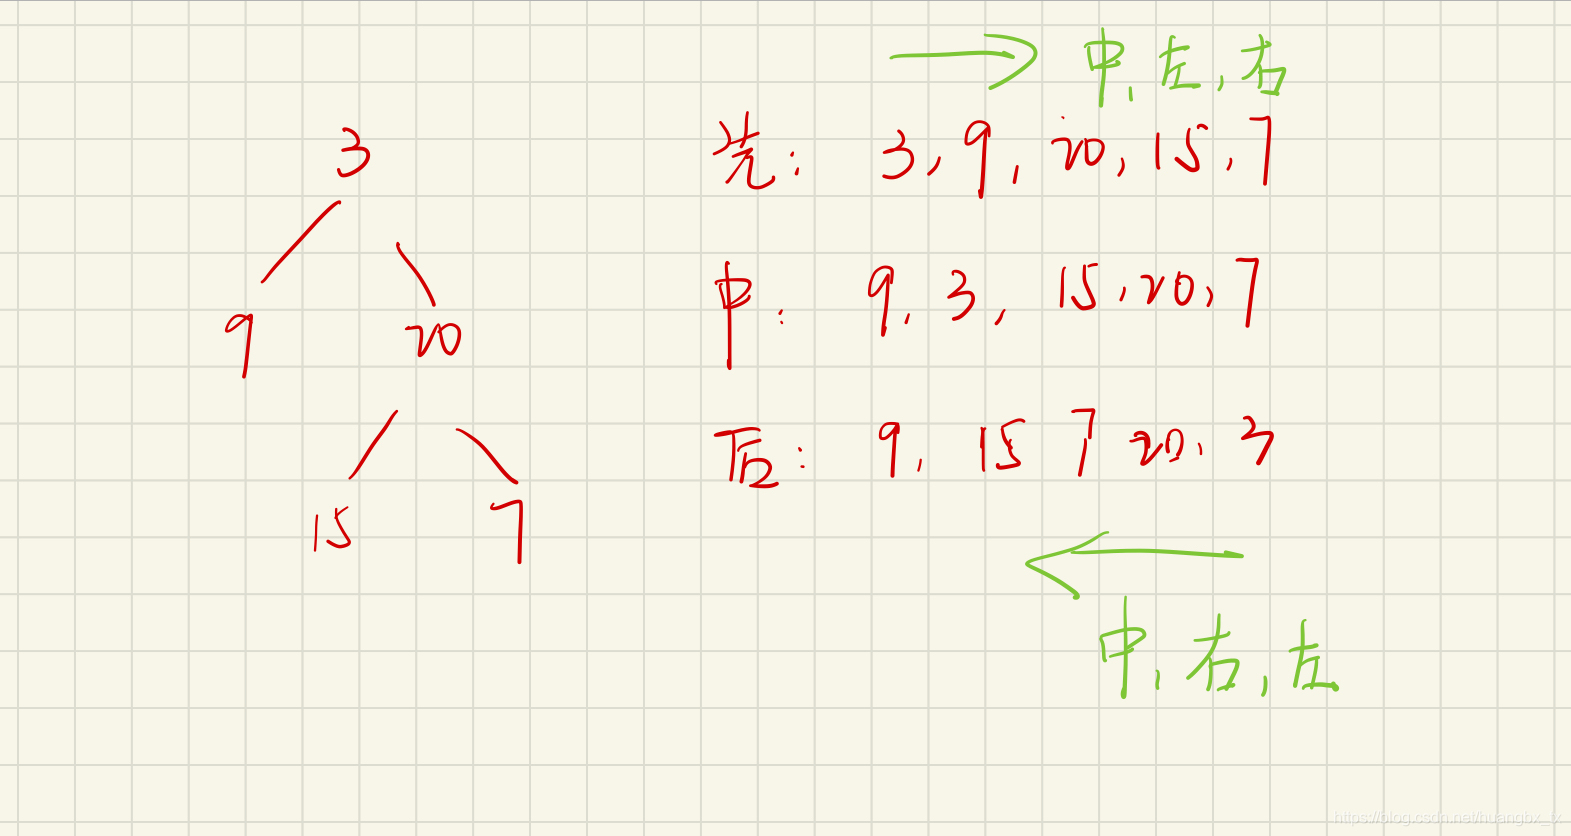 中,左,右
3
先: 3,9,20,15,7
9 20
中: 9,3,15,20,7
15 7
后: 9,15 7 20,3
中,右,左